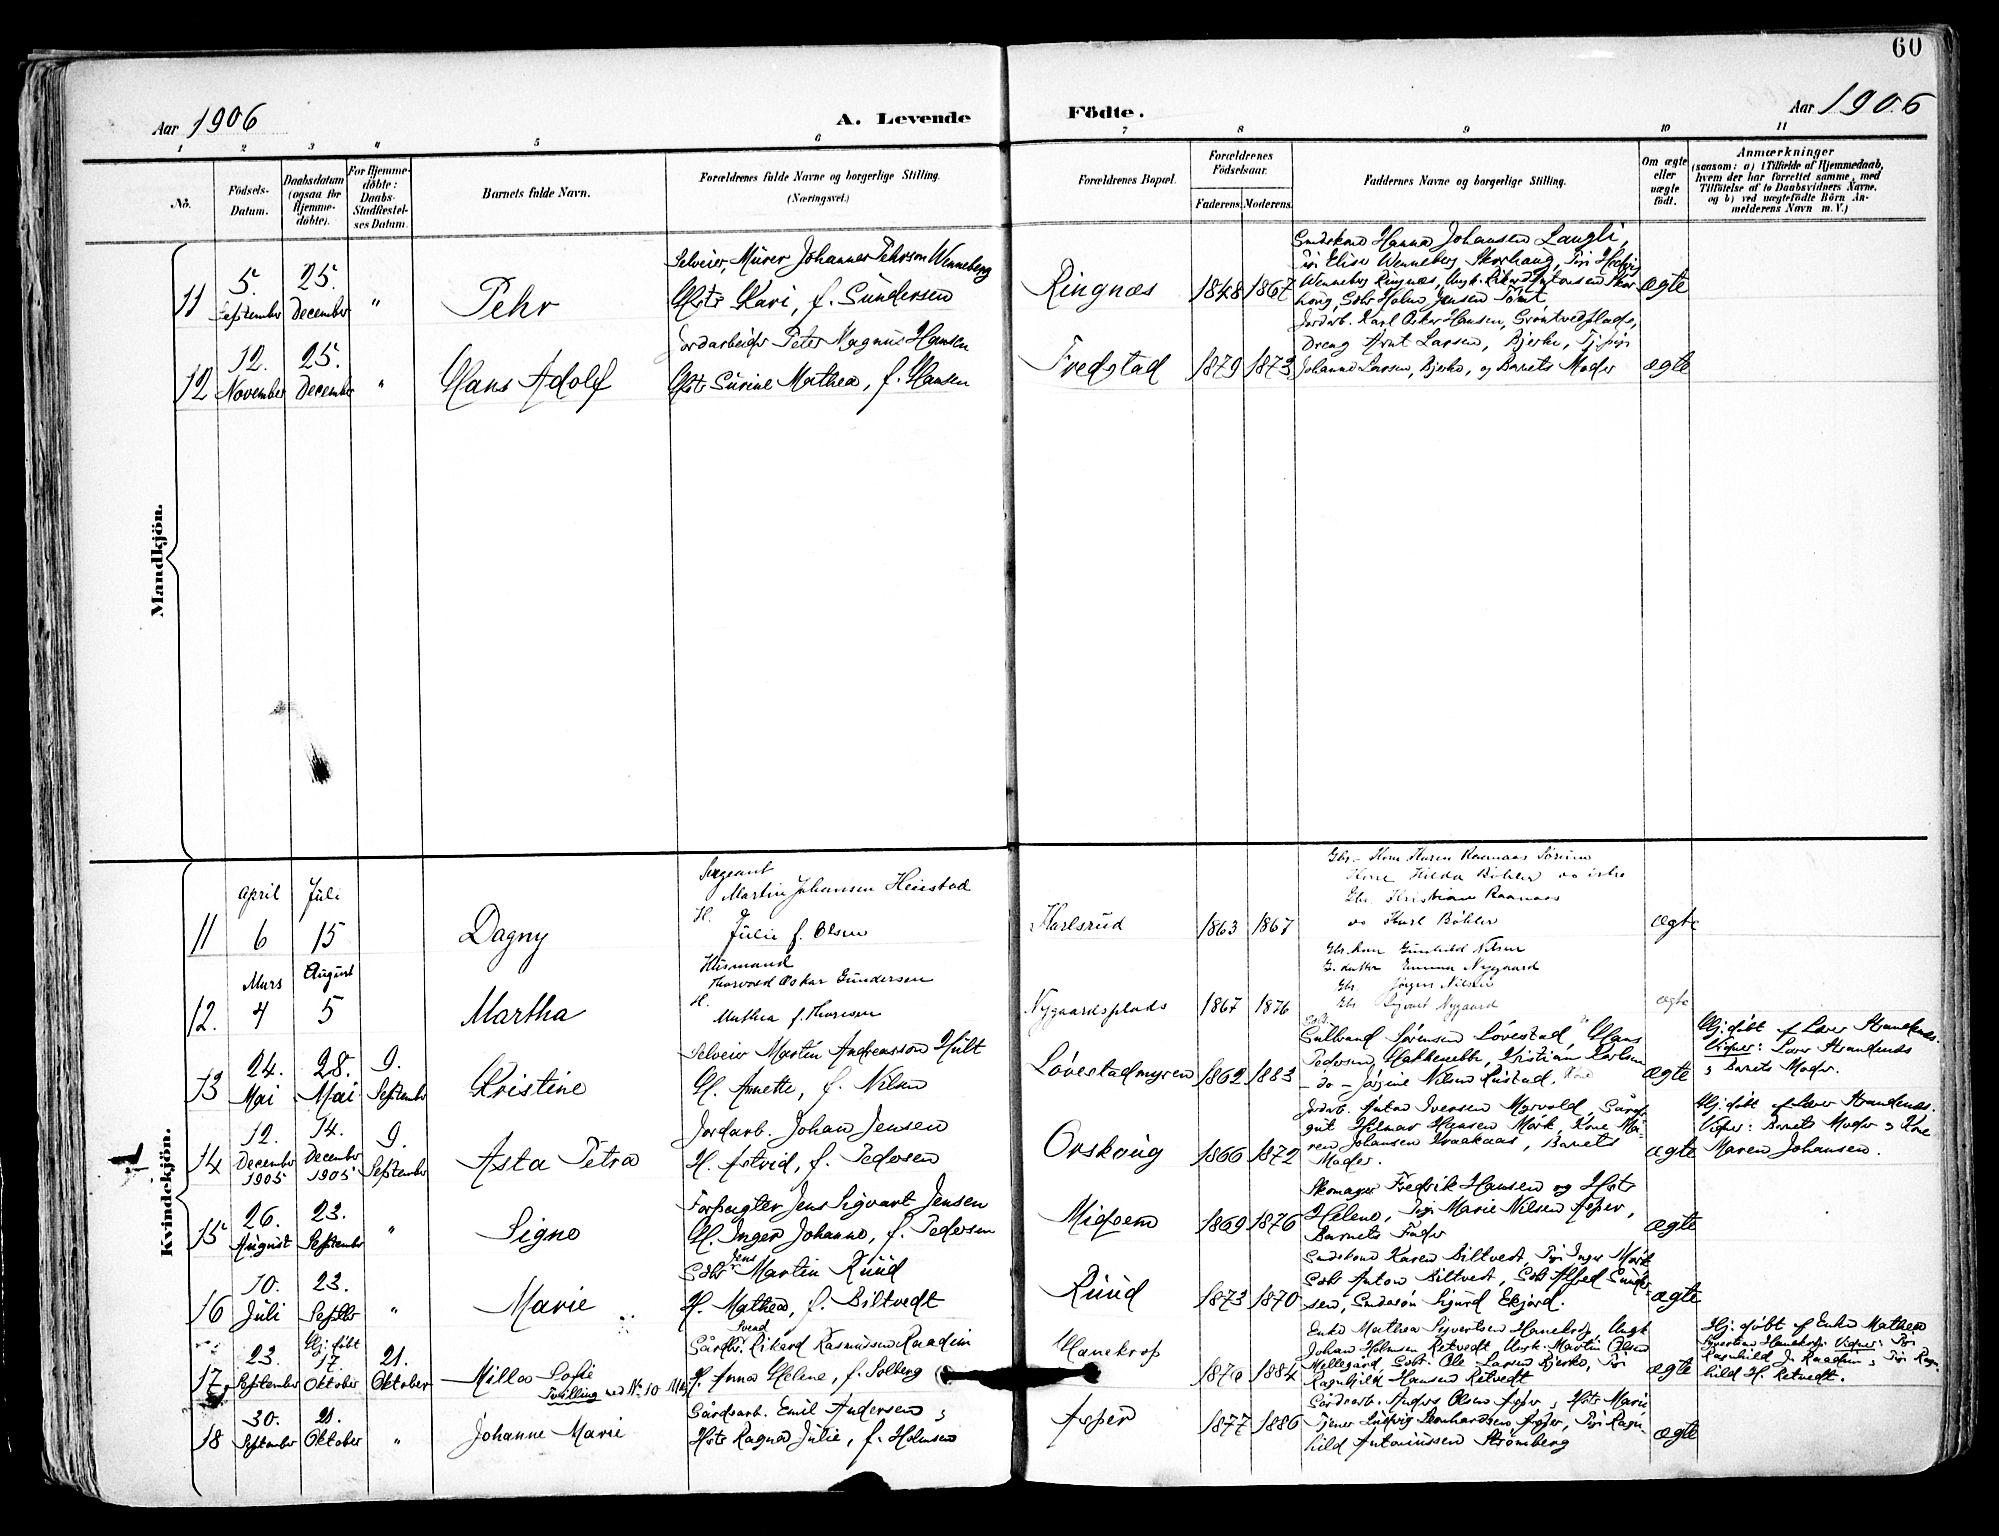 60
Aar 1906
A. Levende Födte.
Aar 1906
1 2 3 4 5 6 7 8 9 10 11
No.
Födsels-Datum.
Daabsdatum (ogsaa for Hjemme-döbte).
For Hjemme-döbte: Daabs-Stadfæstel-ses Datum.
Barnets fulde Navn.
Forældrenes fulde Navne og borgerlige Stilling. (Næringsvei.)
Forældrenes Bopæl.
Forældrenes Födselsaar.
Faderens. Moderens.
Faddernes Navne og borgerlige Stilling.
Om ægte eller uægte födt.
Anmærkninger
(saasom: a) i Tilfælde af Hjemmedaab, hvem der har forrettet samme, med Tilföielse af to Daabsvidners Navne. og b) ved uægtefödte Börn An-melderens Navn m. V.)
Mandkjön.
11
5. September
25. December
"
Pehr
Selveier, Murer Johannes Pehrson Wenneberg
Hstr Kari, f. Gundersen
Ringnæs
1848 1867
Gmdskone Hanna Johansen Langli,
Pig Elise Wenneberg Skorhaug, Pig Hedvig
Wenneberg Ringnæs, Ungk. Rikard Antonsen Skor
haug, Gbr Holm Jensen Tømt
ægte
12
12. November
25. December
"
Hans Adolf
Jordarbeider Peter Magnus Hansen
Hstr Surine Mathea, f. Hansen
Fredstad
1879 1873
Jordarb. Karl Oskar Hansen, Grøntvedplads,
Dreng Arnt Larsen, Bjerke, Tj.pige
Johanne Larsen, Bjerke, og Barnets Moder
ægte
Kvindekjön.
11
April 6
Juli 15
Dagny
Sergeant
Martin Johansen Heiestad
H. Julie f. Olsen
Karlsrud
1863 1867
Gbr. Kone Karen Raanaas Sørum
Kone Hilda Böhler
Gbr. Kristian Raanaas
do Karl Böhler
ægte
12.
Mars 4
August 5
Martha
Husmand
Thorvald Oskar Gundersen
H. Mathea f. Thoresen
Nygaardsplads
1867 1876
Gbr. kone Gunhild Nilsen
G. datter Emma Nygaard
Gbr. Jørgen Nilsen
Gbr. Sigvart Nygaard
ægte
13
24. Mai
28. Mai
9. September
Kristine
Selveier Martin Andreassen Hult
H. Annette, f. Nilsen
Løvestadmyren
1862 1883
Gulbrand Sørensen Løvestad, Hans
Pedersen Hakkenebba, Kristian Karlsen
– do – Jørgine Nilsen Rustad,
ægte
Hj. døbt af Lærer Strandenæs.
Vidner: Lærer Strandenæs
& Barnets Moder.
14
12. December 1905
14. December 1905
9. September
Asta Petra
Jordarb. Johan Jensen
H. Astrid, f. Pedersen
Orskoug
1866 1872
Jordarb. Anton Iversen Myrvold, Gårds
gut Hilmar Hansen Mørk, Kone Ma-
ren Johansen Kraakaas, Barnets
Moder.
ægte
Hj. døbt af Lærer Strandenæs.
Vidner: Barnets Moder & Kone
Maren Johansen.
15
26. August
23. September
"
Signe
Forpagter Jens Sigvart Jensen
H. Inger Johanne, f. Pedersen
Midsem
1869 1876
Skomager Fredrik Hansen og Hstr
Helene, Pige Marie Nilsen Asper,
Barnets Fader
ægte
16
10. Juli
23. Septbr
"
Marie
Gbr Jens Martin Ruud
H. Mathea, f. Biltvedt
Ruud
1873 1870
Gmdskone Karen Biltvedt, Pig Inger Mørk
Gbr Anton Biltvedt, Gbr Alfred Gunder-
sen, Gmdssøn Sigurd Ekjord.
ægte
17
23. September
Hj. døbt 17. Oktober
21. Oktober
Milla Sofie
Tvilling ved No 10 Mk.
Svend
Gårdbr. Rikard Rasmussen Raadim
H. Anna Helene, f. Solberg
Hanekrop
1870 1884
Enke Mathea Syvertsen Hanekrop, Ungk.
Johan Holmsen Retvedt, Ungk. Martin Olsen
Mellegård, Gbr. Ole Larsen Bjerke, Pig
Ragnhild Hansen Retvedt
ægte
Hj. døbt af Enke Mathea
Syvertsen Hanekrop. Vidner: Pige
Ragnhild J. Raadim & Pige Ragn-
hild H. Retvedt.
18
30. September
21. Oktober
"
Johanne Marie
Gårdsarb. Emil Andersen &
Hstr Ragna Julie, f. Holmsen
Asper
1877 1886
Gårdsarb. Anders Olsen Asper & Hstr Marie
Tjener Ludvig Leonhardsen Asper, Pige Ragn
hild Antoniussen Strømberg
ægte